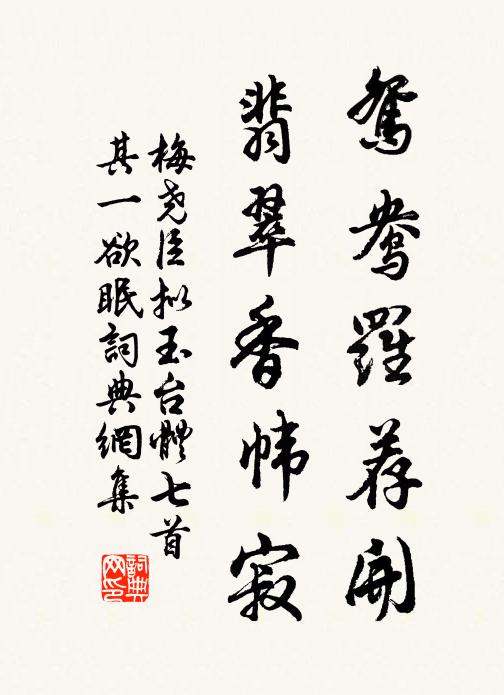 鸳鸯羅荐開
翡翠香幃寂
梅尧臣拟玉台體七首
其一欲眠詞典網集
詞典网印